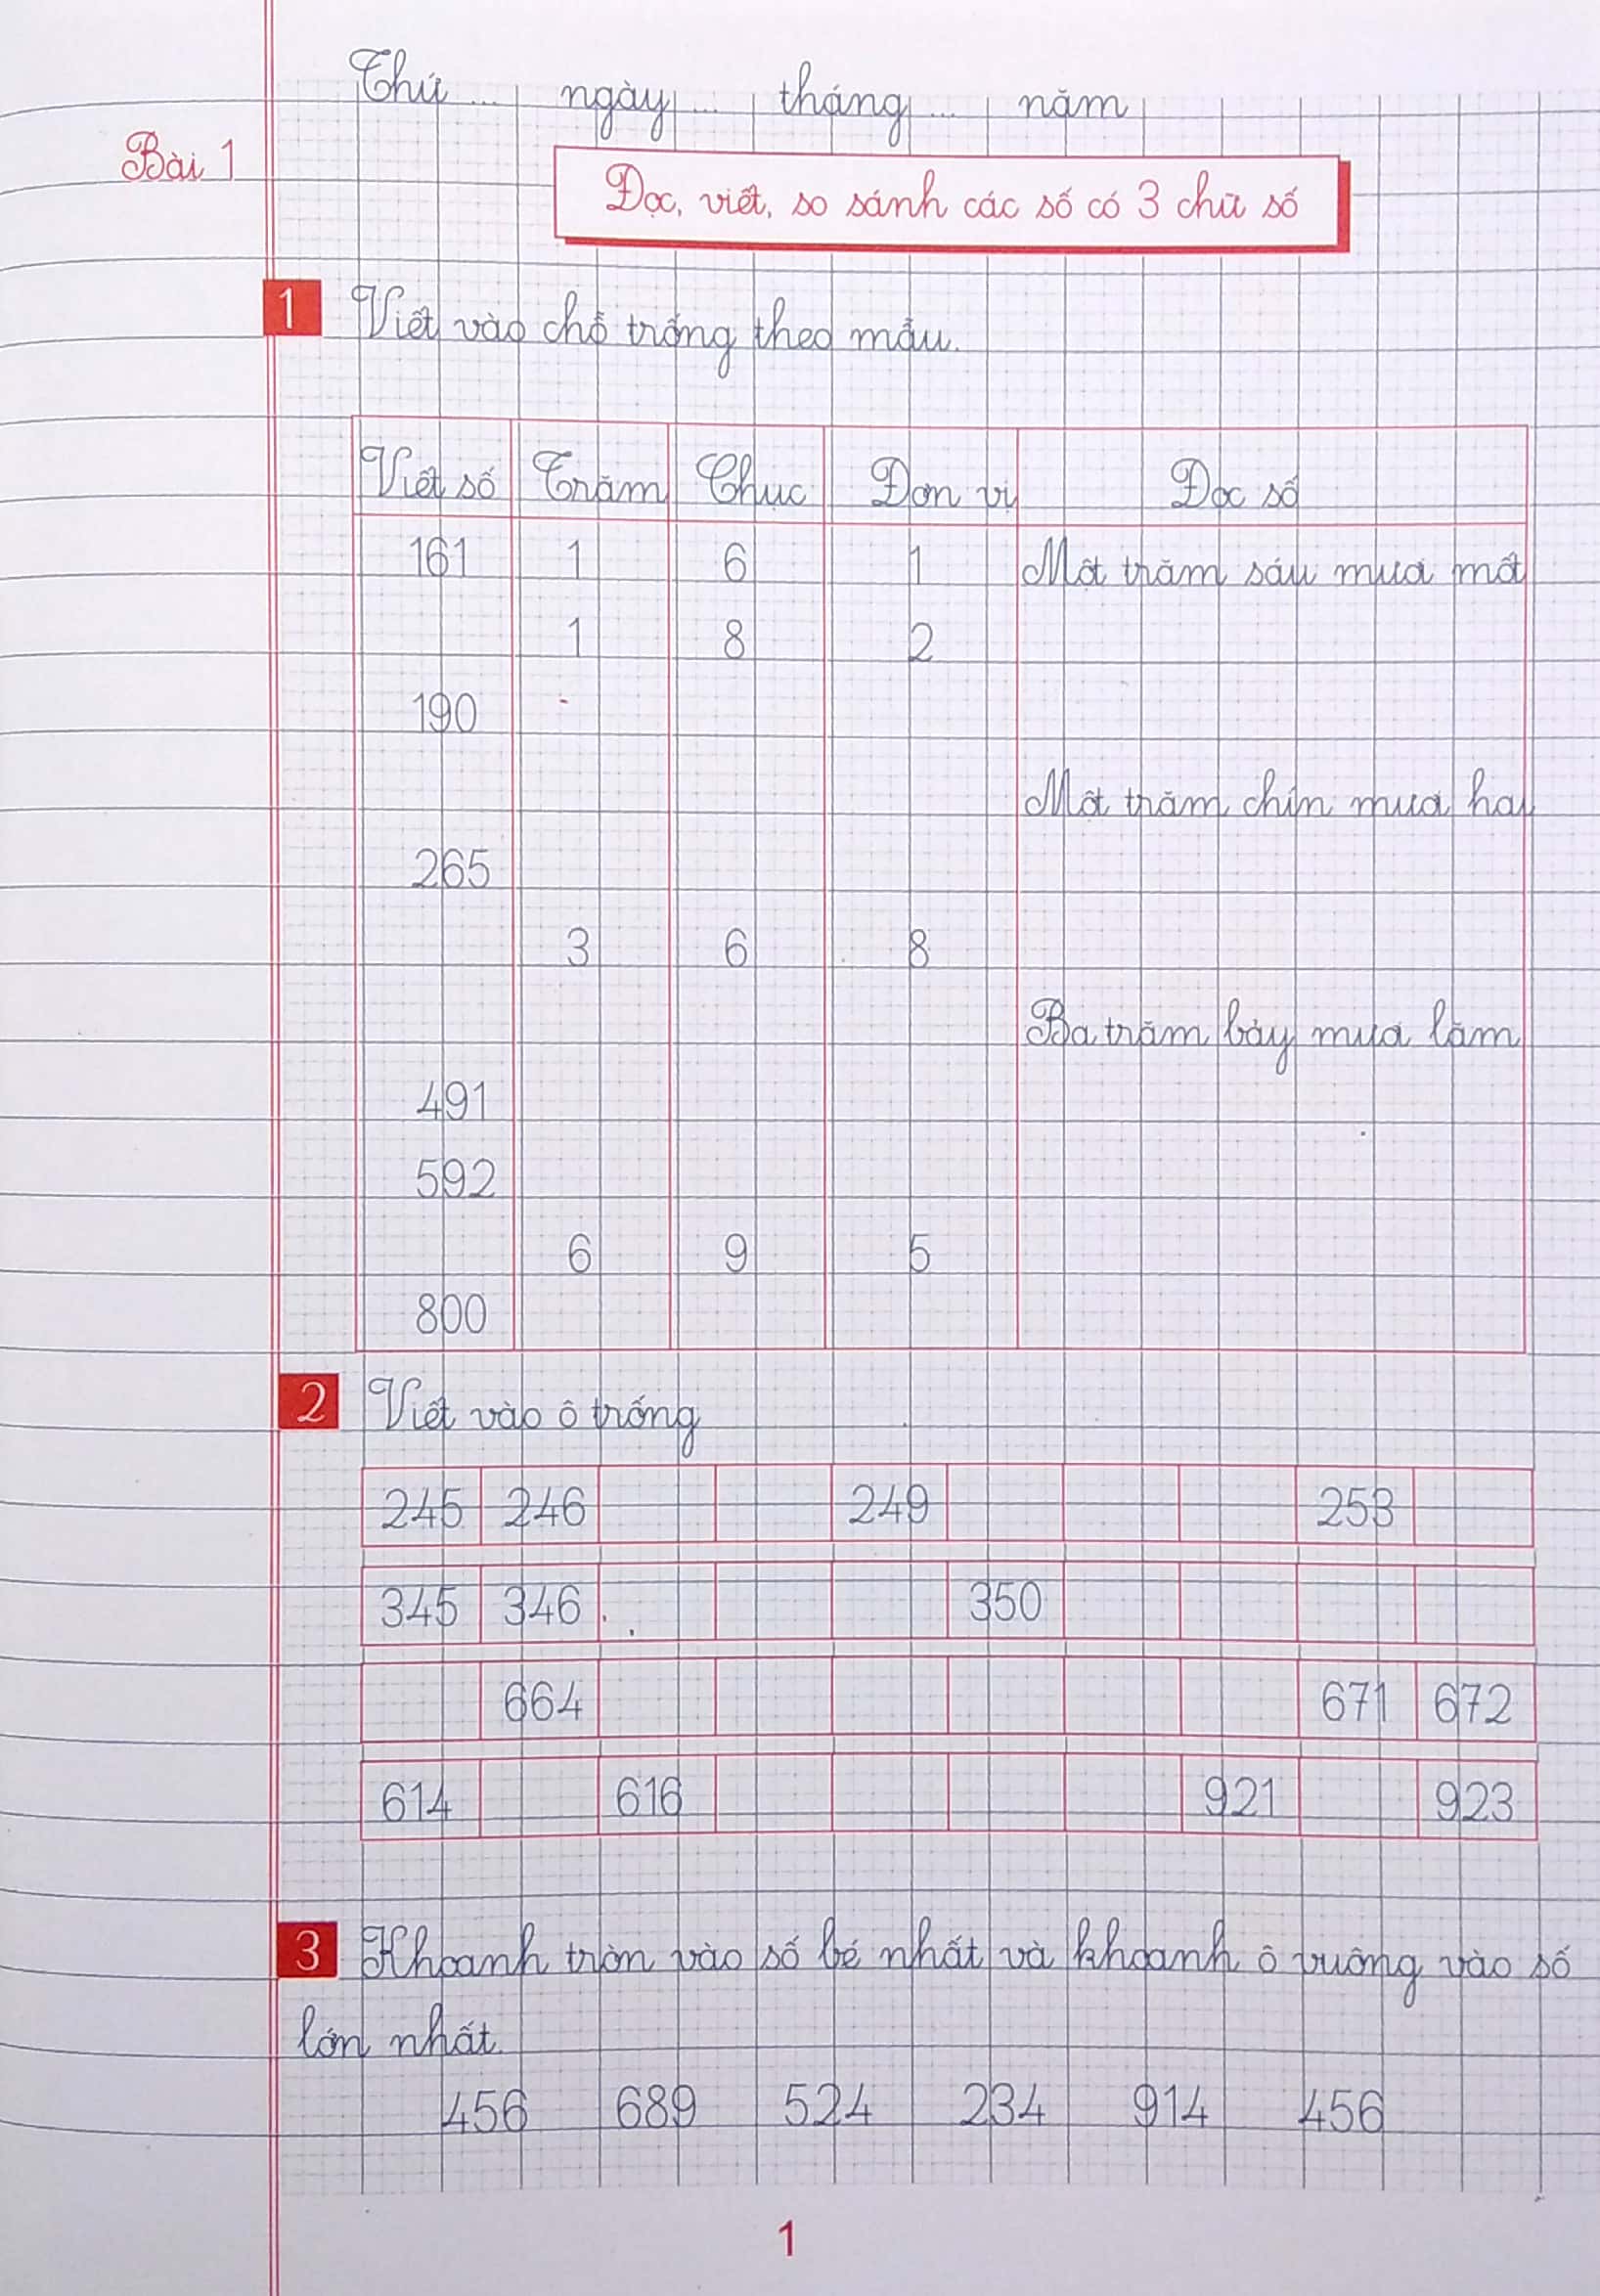 Thứ ... ngày ... tháng ... năm
Bài 1
Đọc, viết, so sánh các số có 3 chữ số
1 Viết vào chỗ trống theo mẫu.
Viết số Trăm Chục Đơn vị Đọc số
161 1 6 1 Một trăm sáu mươi mốt
1 8 2
190
Một trăm chín mươi hai
265
3 6 8
Ba trăm bảy mươi lăm
491
592
6 9 5
800
2 Viết vào ô trống
245 246 249 253
345 346 350
664 671 672
614 616 921 923
3 Khoanh tròn vào số bé nhất và khoanh ô vuông vào số
lớn nhất.
456 689 524 234 914 456
1